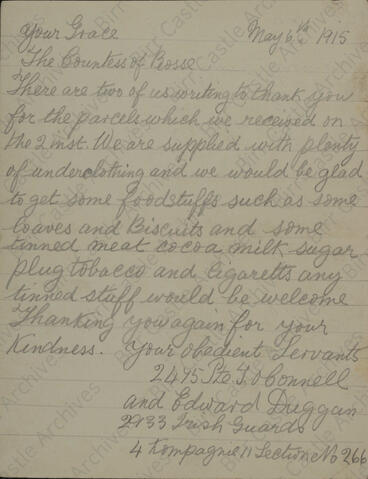 Your Grace May 6th 1915
The Countess of Rosse
There are two of us writing to thank you
for the parcels which we received on
the 2 inst. We are supplied with plenty
of underclothing and we would be glad
to get some foodstuffs such as some
loaves and Biscuits and some
tinned meat cocoa milk sugar
plug tobacco and cigaretts any
tinned stuff would be welcome
Thanking you again for your
Kindness. Your obedient Servants
2475 Pte J. O Connell
and Edward Duggan
2933 Irish Guards
4 Kompagnie 11 Section No 266
Birr Castle Archives